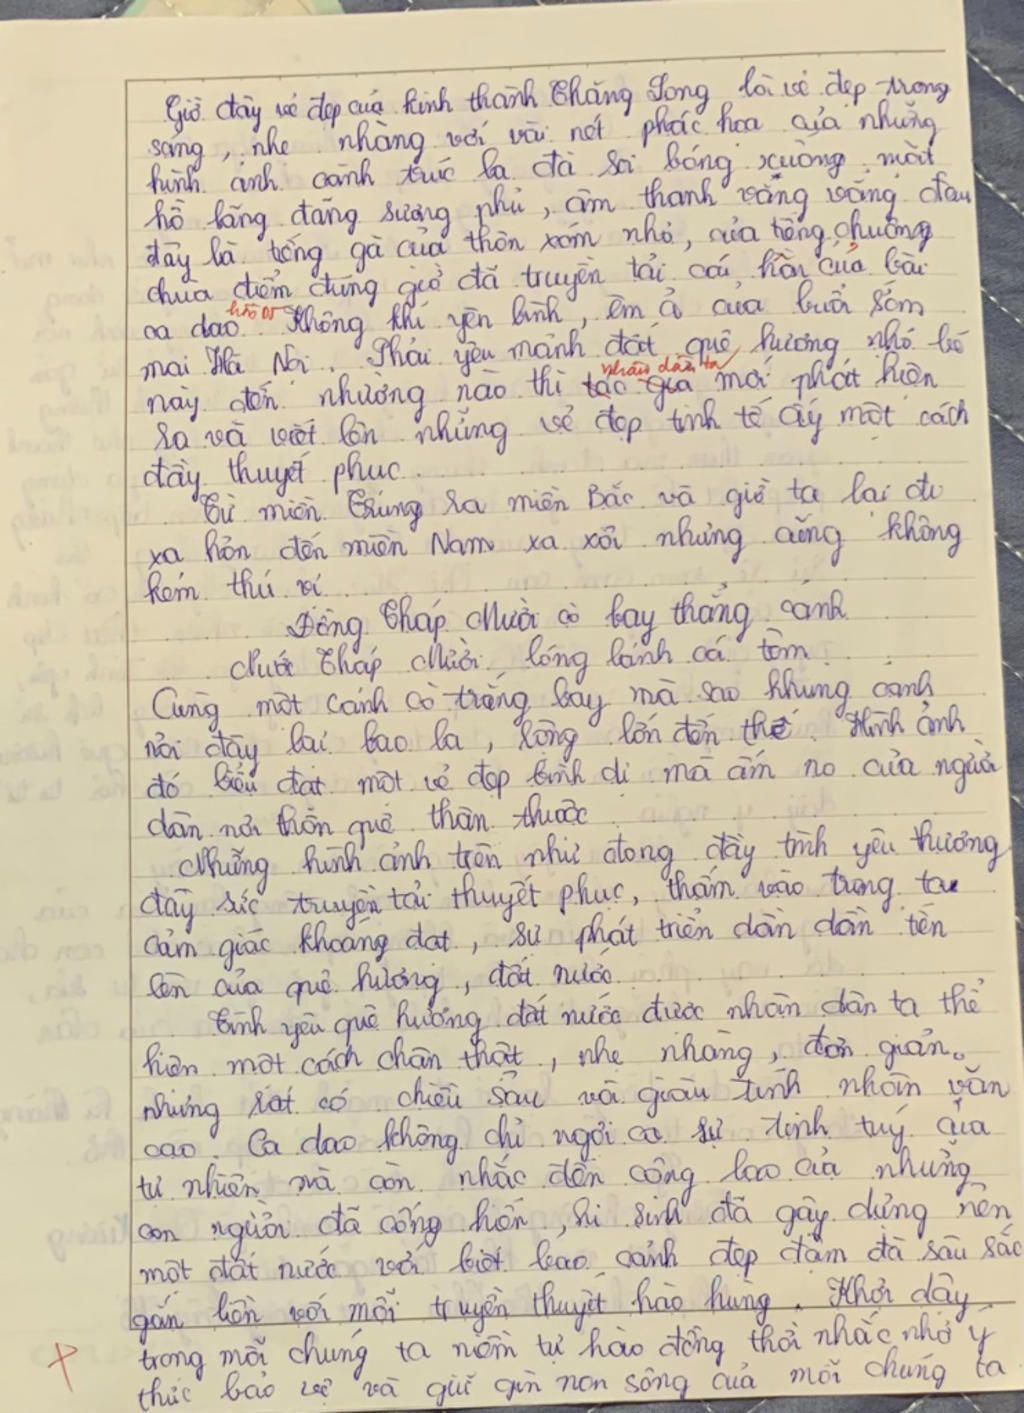 Giờ đây vẻ đẹp của kinh thành Thăng Long lài vẻ đẹp trong
sáng, nhẹ nhàng với vài nét phác hoạ của những
hình ảnh cành trúc la đà soi bóng xuống mặt
hồ lãng đãng sương phủ, âm thanh văng vẳng đâu
đây là tiếng gà của thôn xóm nhỏ, của tiếng chuông
chùa điểm đúng giờ đã truyền tải cái hồn của bài
ca dao. Không khí yên bình, êm ả của buổi sớm
mai Hà Nội. Phải yêu mảnh đất quê hương nhỏ bé
nhân dân ta
này đến nhường nào thì tác giả mới phát hiện
ra và viết lên những vẻ đẹp tinh tế ấy một cách
đầy thuyết phục.
Từ miền Trung ra miền Bắc và giờ ta lại đi
xa hơn đến miền Nam xa xôi nhưng cũng không
kém thú vị.
Đồng Tháp Mười cò bay thẳng cánh
Nước Tháp Mười lóng lánh cá tôm.
Cũng một cánh cò trắng bay mà sao khung cảnh
nơi đây lại bao la, rộng lớn đến thế. Hình ảnh
đó biểu đạt một vẻ đẹp bình dị mà ấm no của người
dân nơi thôn quê thân thuộc
Những hình ảnh trên như đong đầy tình yêu thương
đầy sức truyền tải thuyết phục, thấm vào trong ta
cảm giác khoáng đạt, sự phát triển dần dần tiến
lên của quê hương, đất nước.
Tình yêu quê hương đất nước được nhân dân ta thể
hiện một cách chân thật, nhẹ nhàng, đơn giản.
nhưng rất có chiều sâu và giàu tính nhân văn
cao. Ca dao không chỉ ngợi ca sự tinh tuý của
tự nhiên mà còn nhắc đến công lao của những
con người đã cống hiến, hi sinh đã gây dựng nên
một đất nước với biết bao cảnh đẹp đậm đà sâu sắc
gắn liền với mỗi truyền thuyết hào hùng. Khơi dậy
trong mỗi chúng ta niềm tự hào đồng thời nhắc nhở ý
thức bảo vệ và giữ gìn non sông của mỗi chúng ta